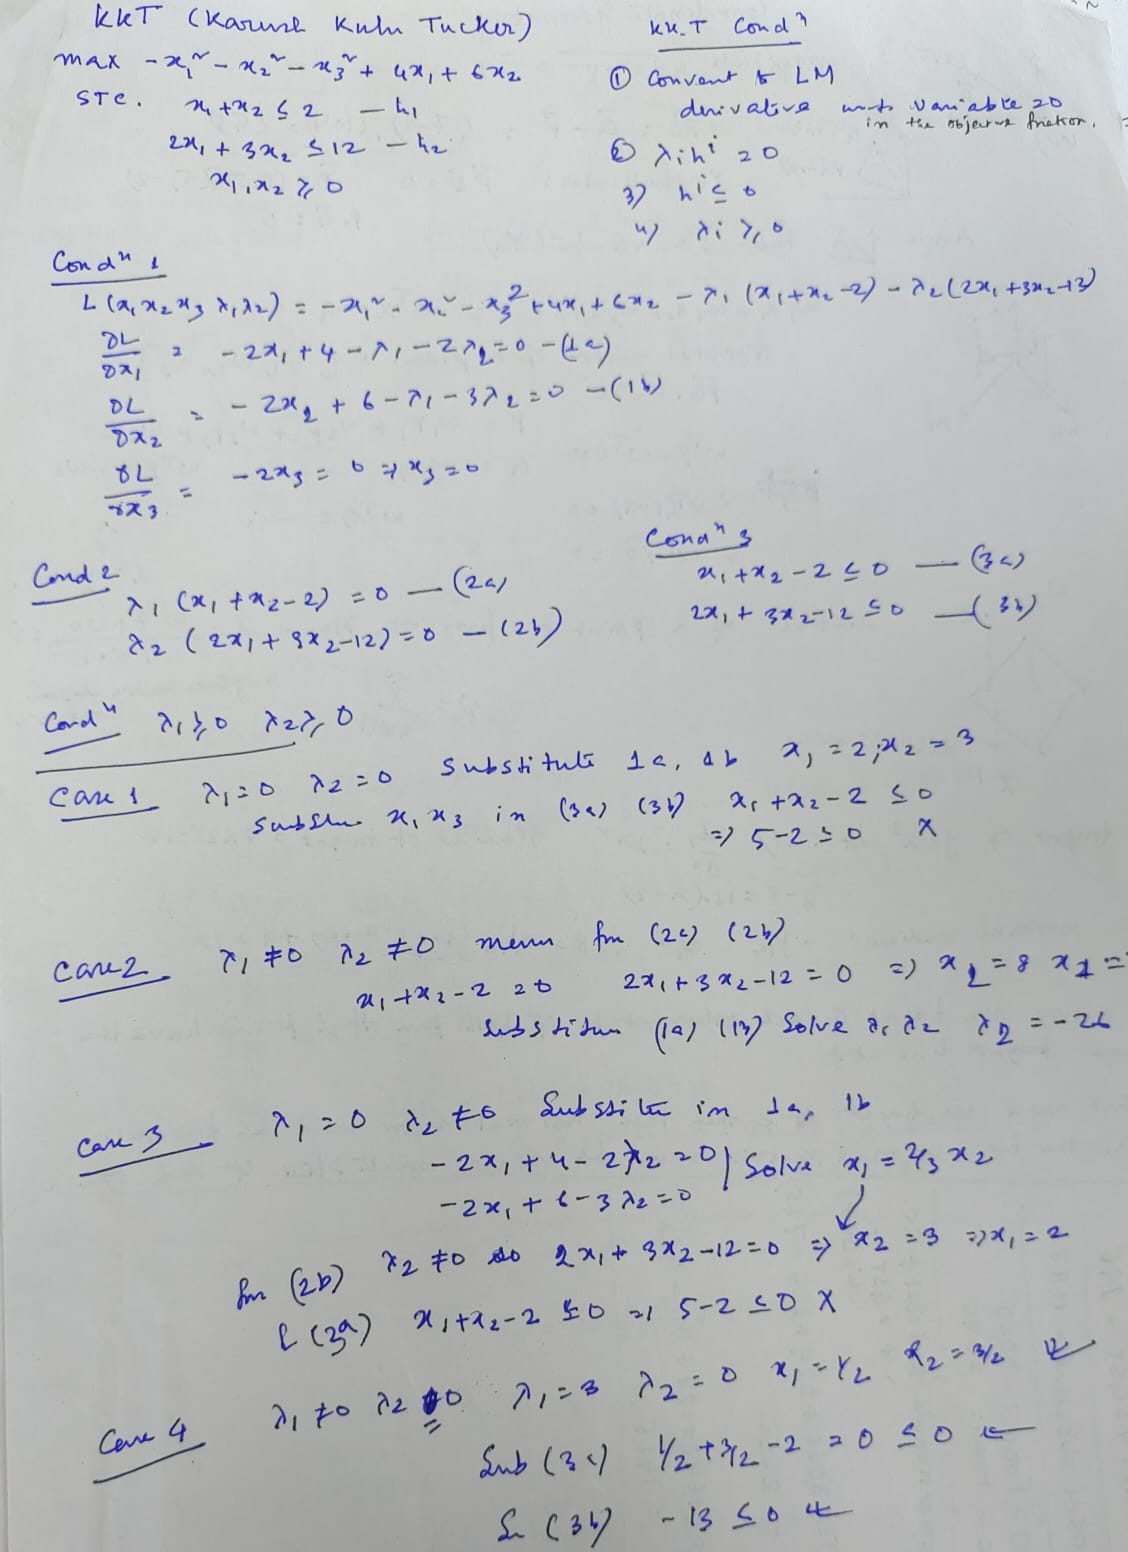 KKT (Karush Kuhn Tucker)
max -x₁² - x₂² - x₃² + 4x₁ + 6x₂
STC. x₁ + x₂ ≤ 2 — h₁
2x₁ + 3x₂ ≤ 12 — h₂
x₁, x₂ ≥ 0
KK.T Condⁿ
① Convert to LM
derivative wrt variable = 0
in the objective function.
② λihⁱ = 0
3) hⁱ ≤ 0
4) λi ≥ 0
Condⁿ 1
L(x₁ x₂ x₃ λ₁ λ₂) = -x₁² - x₂² - x₃² + 4x₁ + 6x₂ - λ₁ (x₁+x₂-2) - λ₂(2x₁+3x₂-12)
∂L/∂x₁ = -2x₁ + 4 - λ₁ - 2λ₂ = 0 - (1a)
∂L/∂x₂ = -2x₂ + 6 - λ₁ - 3λ₂ = 0 - (1b)
∂L/∂x₃ = -2x₃ = 0 ⇒ x₃ = 0
Cond 2
λ₁ (x₁ + x₂ - 2) = 0 — (2a)
λ₂ (2x₁ + 3x₂ - 12) = 0 — (2b)
Condⁿ 3
x₁ + x₂ - 2 ≤ 0 — (3a)
2x₁ + 3x₂ - 12 ≤ 0 — (3b)
Cond 4 λ₁ ≥ 0 λ₂ ≥ 0
Case 1 λ₁ = 0 λ₂ = 0 Substitute 1a, 1b x₁ = 2, x₂ = 3
x₁ x₃ in (3a) (3b) x₁ + x₂ - 2 ≤ 0
⇒ 5-2 ≤ 0 X
Case 2 λ₁ ≠ 0 λ₂ ≠ 0 (2a) (2b)
x₁ + x₂ - 2 = 0 2x₁ + 3x₂ - 12 = 0 ⇒ x₂ = 8 x₁ =
(1a) (1b) Solve λ₁ λ₂ λ₂ = -26
Case 3 λ₁ = 0 λ₂ ≠ 0 in 1a, 1b
-2x₁ + 4 - 2λ₂ = 0 | Solve x₁ = 2/3 x₂
-2x₁ + 6 - 3λ₂ = 0
(2b) λ₂ ≠ 0 so 2x₁ + 3x₂ - 12 = 0 ⇒ x₂ = 3 ⇒ x₁ = 2
(3a) x₁ + x₂ - 2 ≤ 0 ⇒ 5-2 ≤ 0 X
Case 4 λ₁ ≠ 0 λ₂ = 0 λ₁ = 3 λ₂ = 0 x₁ = 1/2 x₂ = 3/2
Sub (3a) 1/2 + 3/2 - 2 = 0 ≤ 0 ←
(3b) -13 ≤ 0 ←